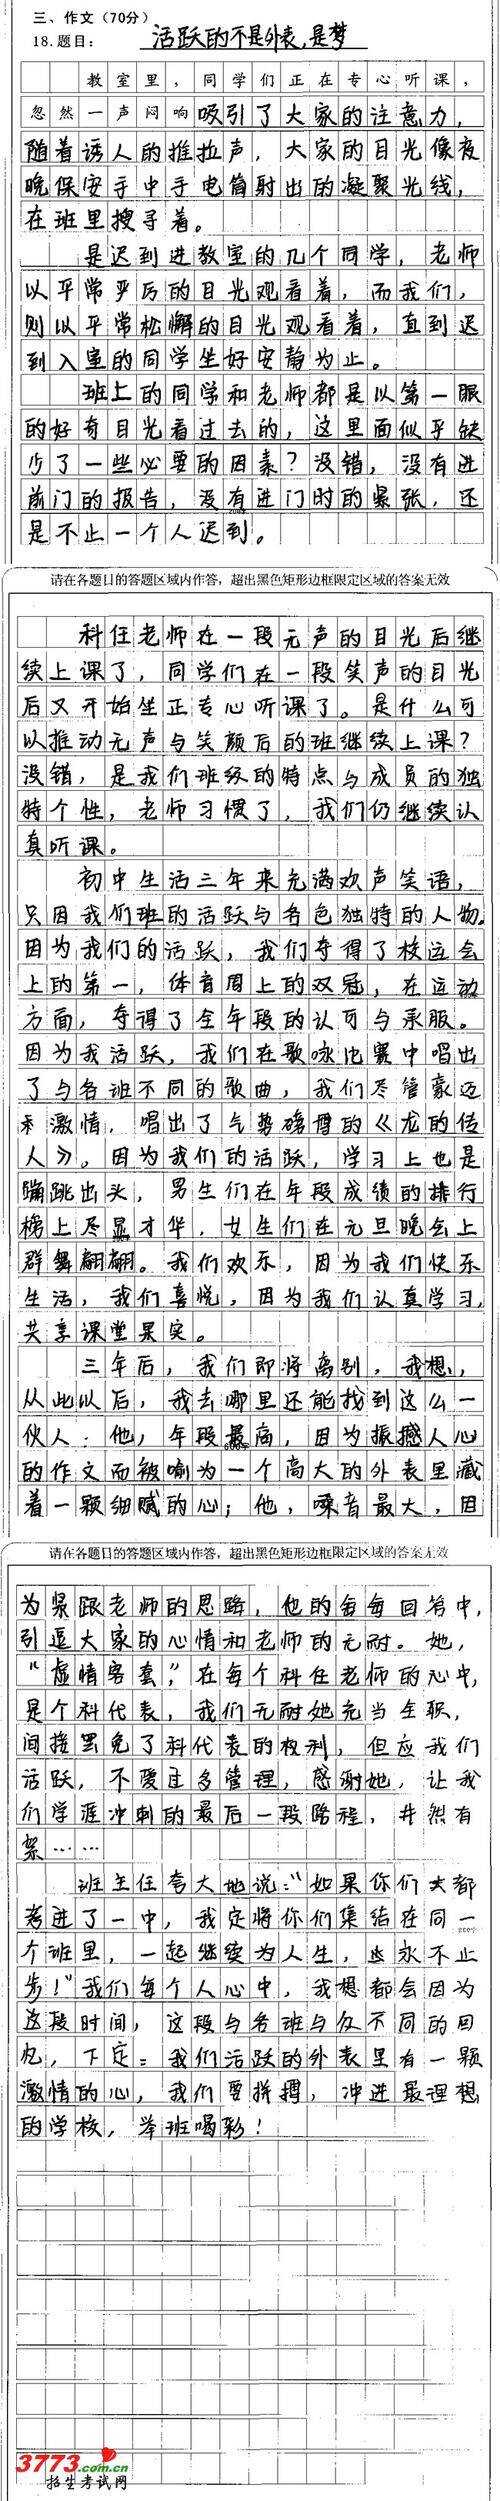 三、作文（70分）
18.题目： 活跃的不是外表，是梦
教室里，同学们正在专心听课，
忽然一声闷响吸引了大家的注意力，
随着诱人的推拉声，大家的目光像夜
晚保安手中手电筒射出的凝聚光线，
在班里搜寻着。
是迟到进教室的几个同学，老师
以平常严厉的目光观看着，而我们，
则以平常松懈的目光观看着，直到迟
到入室的同学坐好安静为止。
班上的同学和老师都是以第一眼
的好奇目光看过去的，这里面似乎缺
少了一些必要的因素？没错，没有进
前门的报告，没有进门时的紧张，还
是不止一个人迟到。
请在各题目的答题区域内作答，超出黑色矩形边框限定区域的答案无效
科任老师在一段无声的目光后继
续上课了，同学们在一段笑声的目光
后又开始坐正专心听课了。是什么可
以推动无声与笑颜后的班继续上课？
没错，是我们班级的特点与成员的独
特个性，老师习惯了，我们仍继续认
真听课。
初中生活三年来充满欢声笑语，
只因我们班的活跃与各色独特的人物。
因为我们的活跃，我们夺得了校运会
上的第一，体育周上的双冠，在运动
方面，夺得了全年段的认可与承服。
因为我活跃，我们在歌咏比赛中唱出
了与各班不同的歌曲，我们尽管豪迈
和激情，唱出了气势磅礴的《龙的传
人》。因为我们的活跃，学习上也是
蹦跳出头，男生们在年段成绩的排行
榜上尽显才华，女生们在元旦晚会上
群舞翩翩。我们欢乐，因为我们快乐
生活，我们喜悦，因为我们认真学习，
共享课堂果实。
三年后，我们即将离别，我想，
从此以后，我去哪里还能找到这么一
伙人：他，年段最高，因为振撼人心
的作文而被喻为一个高大的外表里藏
着一颗细腻的心；他，嗓音最大，因
请在各题目的答题区域内作答，超出黑色矩形边框限定区域的答案无效
为紧跟老师的思路，他的每每回答中，
引逗大家的心情和老师的无耐。她，
“虚情客套”，在每个科任老师的心中，
是个科代表，我们无耐她充当全职，
间接罢免了科代表的权利，但应我们
活跃，不爱过多管理，感谢她，让我
们学涯冲刺的最后一段路程，井然有
絮……
班主任夸大地说：“如果你们大都
考进了一中，我定将你们集结在同一
个班里，一起继续为人生，永不止
步！”我们每个人心中，我想都会因为
这段时间，这段与各班与众不同的回
忆，下定：我们活跃的外表里有一颗
激情的心，我们要拼搏，冲进最理想
的学校，举班喝彩！
3773.com.cn
招生考试网